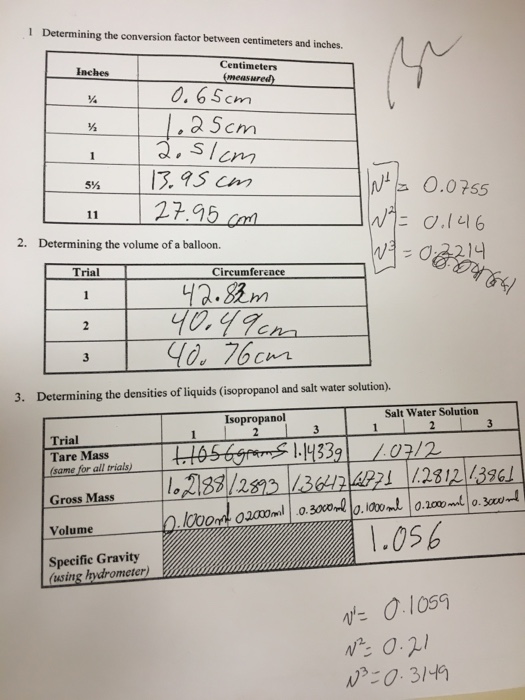 1 Determining the conversion factor between centimeters and inches.
Inches Centimeters (measured)
¼ 0.65cm
½ 1.25cm
1 2.51cm
5½ 13.95 cm
11 27.95 cm
N¹ = 0.0755
N² = 0.146
N³ = 0.2214
2. Determining the volume of a balloon.
Trial Circumference
1 42.83m
2 40.49cm
3 40.76cm
3. Determining the densities of liquids (isopropanol and salt water solution).
Isopropanol Salt Water Solution
Trial 1 2 3 1 2 3
Tare Mass (same for all trials) 1.1056grams 1.1433g 1.0712
Gross Mass 1.2188 1.2893 1.3647 1.2812 1.3861
Volume 0.1000ml 0.2000ml 0.3000ml 0.1000ml 0.2000ml 0.3000ml
Specific Gravity (using hydrometer) 1.056
N¹= 0.1059
N²= 0.21
N³=0.3149